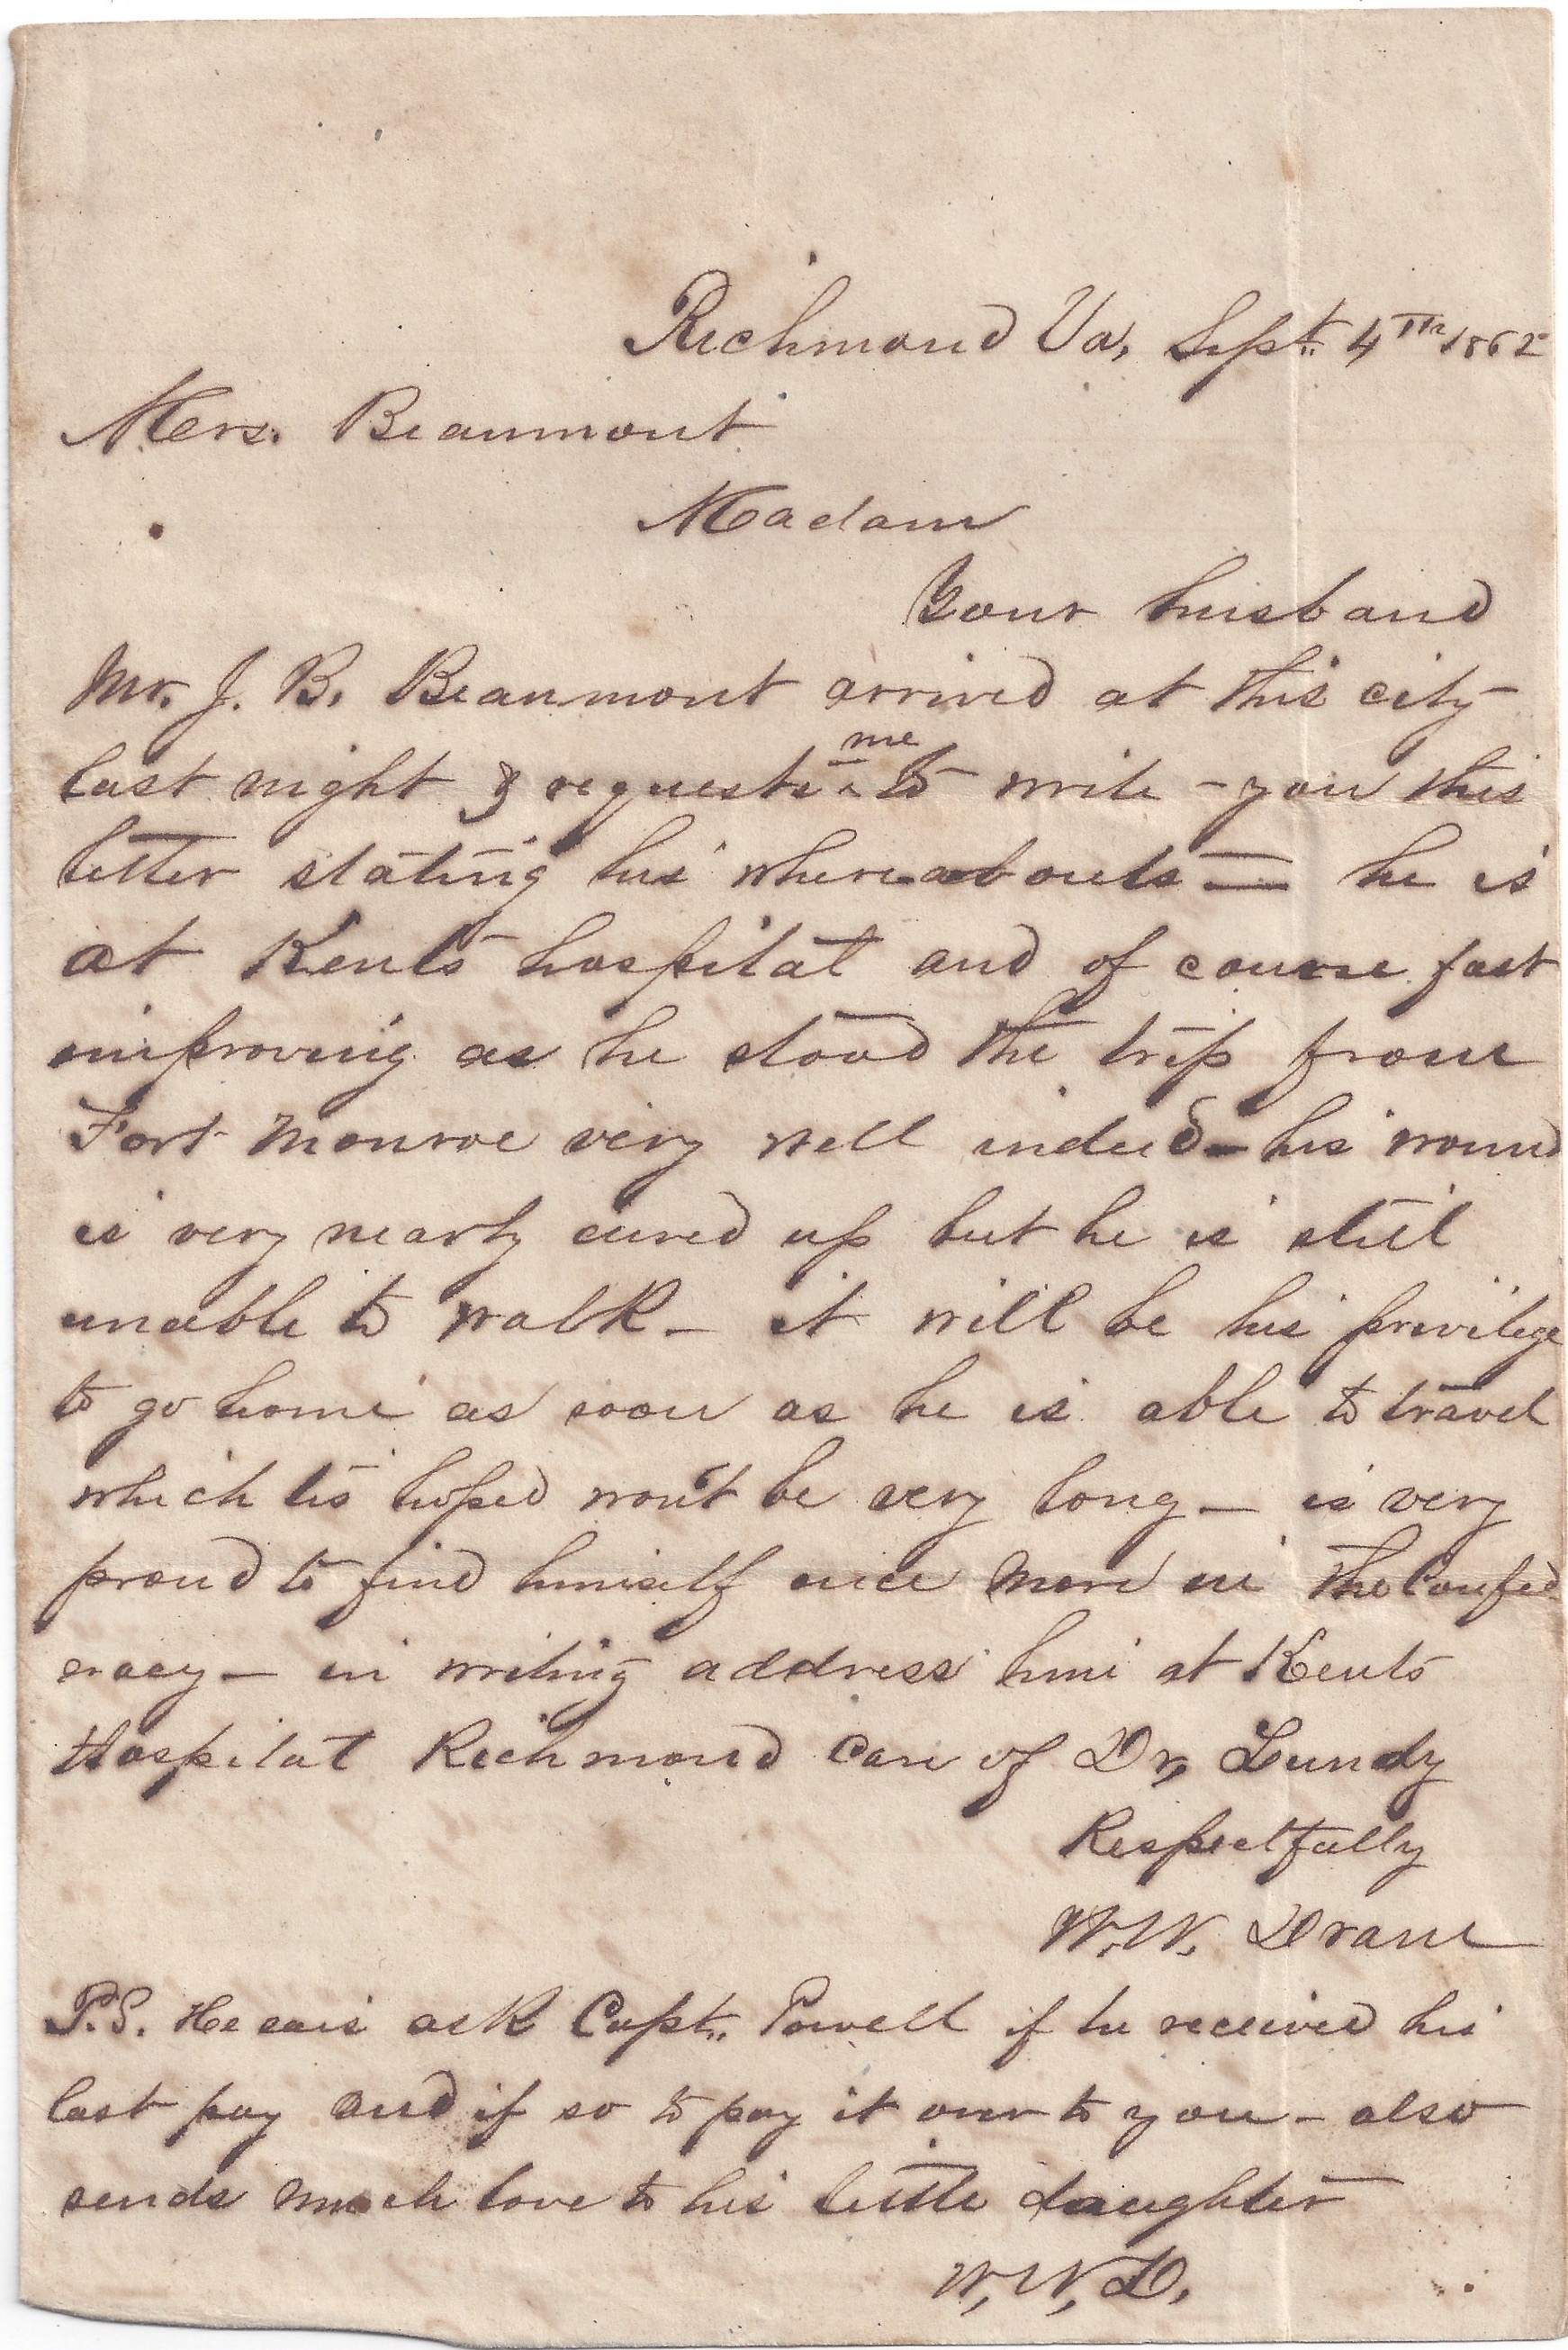 Richmond Va, Sept. 4th 1862
Mrs. Beaumont
Madam
Your husband
Mr. J. B. Beaumont arrived at this city
last night & requests me to write - you this
letter stating his whereabouts — he is
at Kents hospital and of course fast
improving as he stood the trip from
Fort Monroe very well indeed - his wound
is very nearly cured up but he is still
unable to walk - it will be his privilege
to go home as soon as he is able to travel
which tis hoped won't be very long - is very
proud to find himself once more in the Confed
eracy - in writing address him at Kents
Hospital Richmond care of Dr, Lundy
Respectfully
W.W. Drane
P.S. He says ask Capt. Powell if he received his
last pay and if so to pay it over to you - also
sends much love to his little daughter
W, W, D.